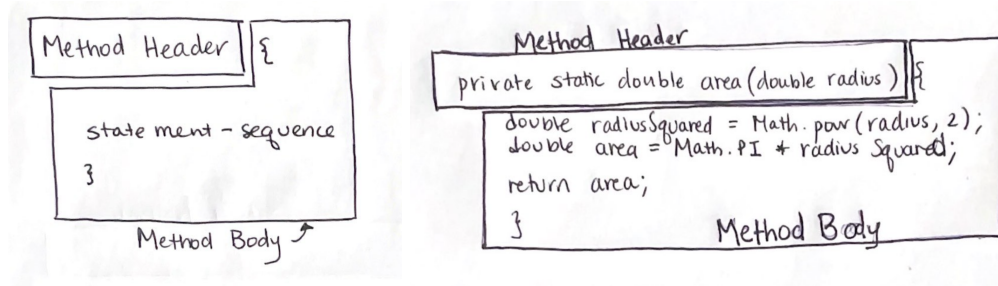 Method Header {
state ment - sequence
}
Method Body
Method Header
private static double area (double radius) {
double radiusSquared = Math.pow (radius, 2);
double area = Math.PI * radius Squared;
return area;
}
Method Body